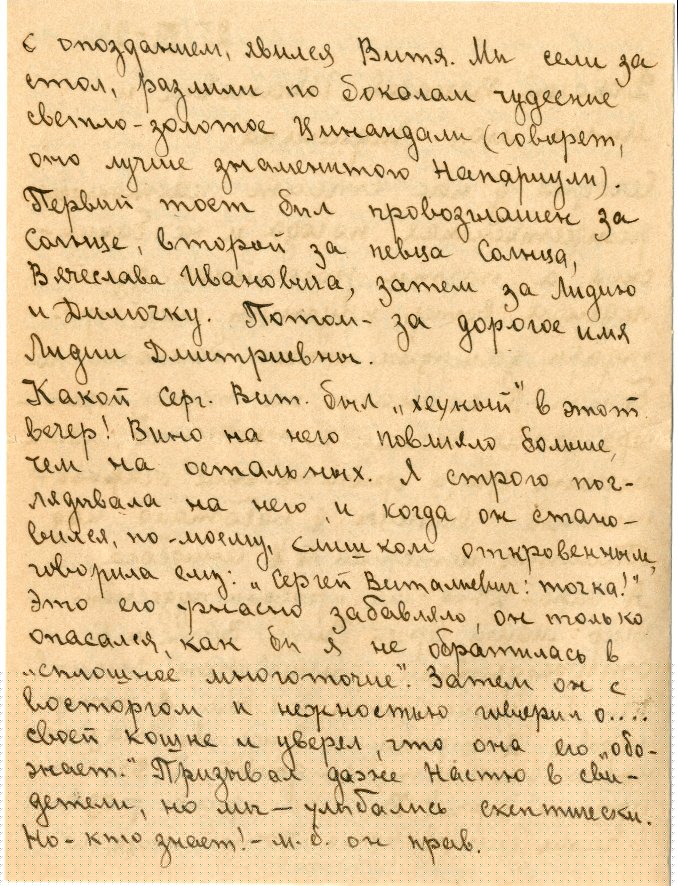 с опозданием, явился Витя. Мы сели за
стол, разлили по бокалам чудесное
светло-золотое Цинандали (говорят,
оно лучше знаменитого Напареули).
Первый тост был провозглашен за
Солнце, второй за певца Солнца,
Вячеслава Ивановича, затем за Лидию
и Димочку. Потом - за дорогое имя
Лидии Дмитриевны.
Какой Серг. Вит. был „хеуный" в этот
вечер! Вино на него повлияло больше,
чем на остальных. Я строго пог-
лядывала на него, и когда он стано-
вился, по-моему, слишком откровенным,
говорила ему: „Сергей Витальевич: точка!"
Это его ужасно забавляло, он только
опасался, как бы я не обратилась в
„сплошное многоточие". Затем он с
восторгом и нежностью говорил о....
своей кошке и уверял, что она его „обо-
жает." Призывал даже Настю в сви-
детели, но мы - улыбались скептически.
Но - кто знает! - м. б. он прав.